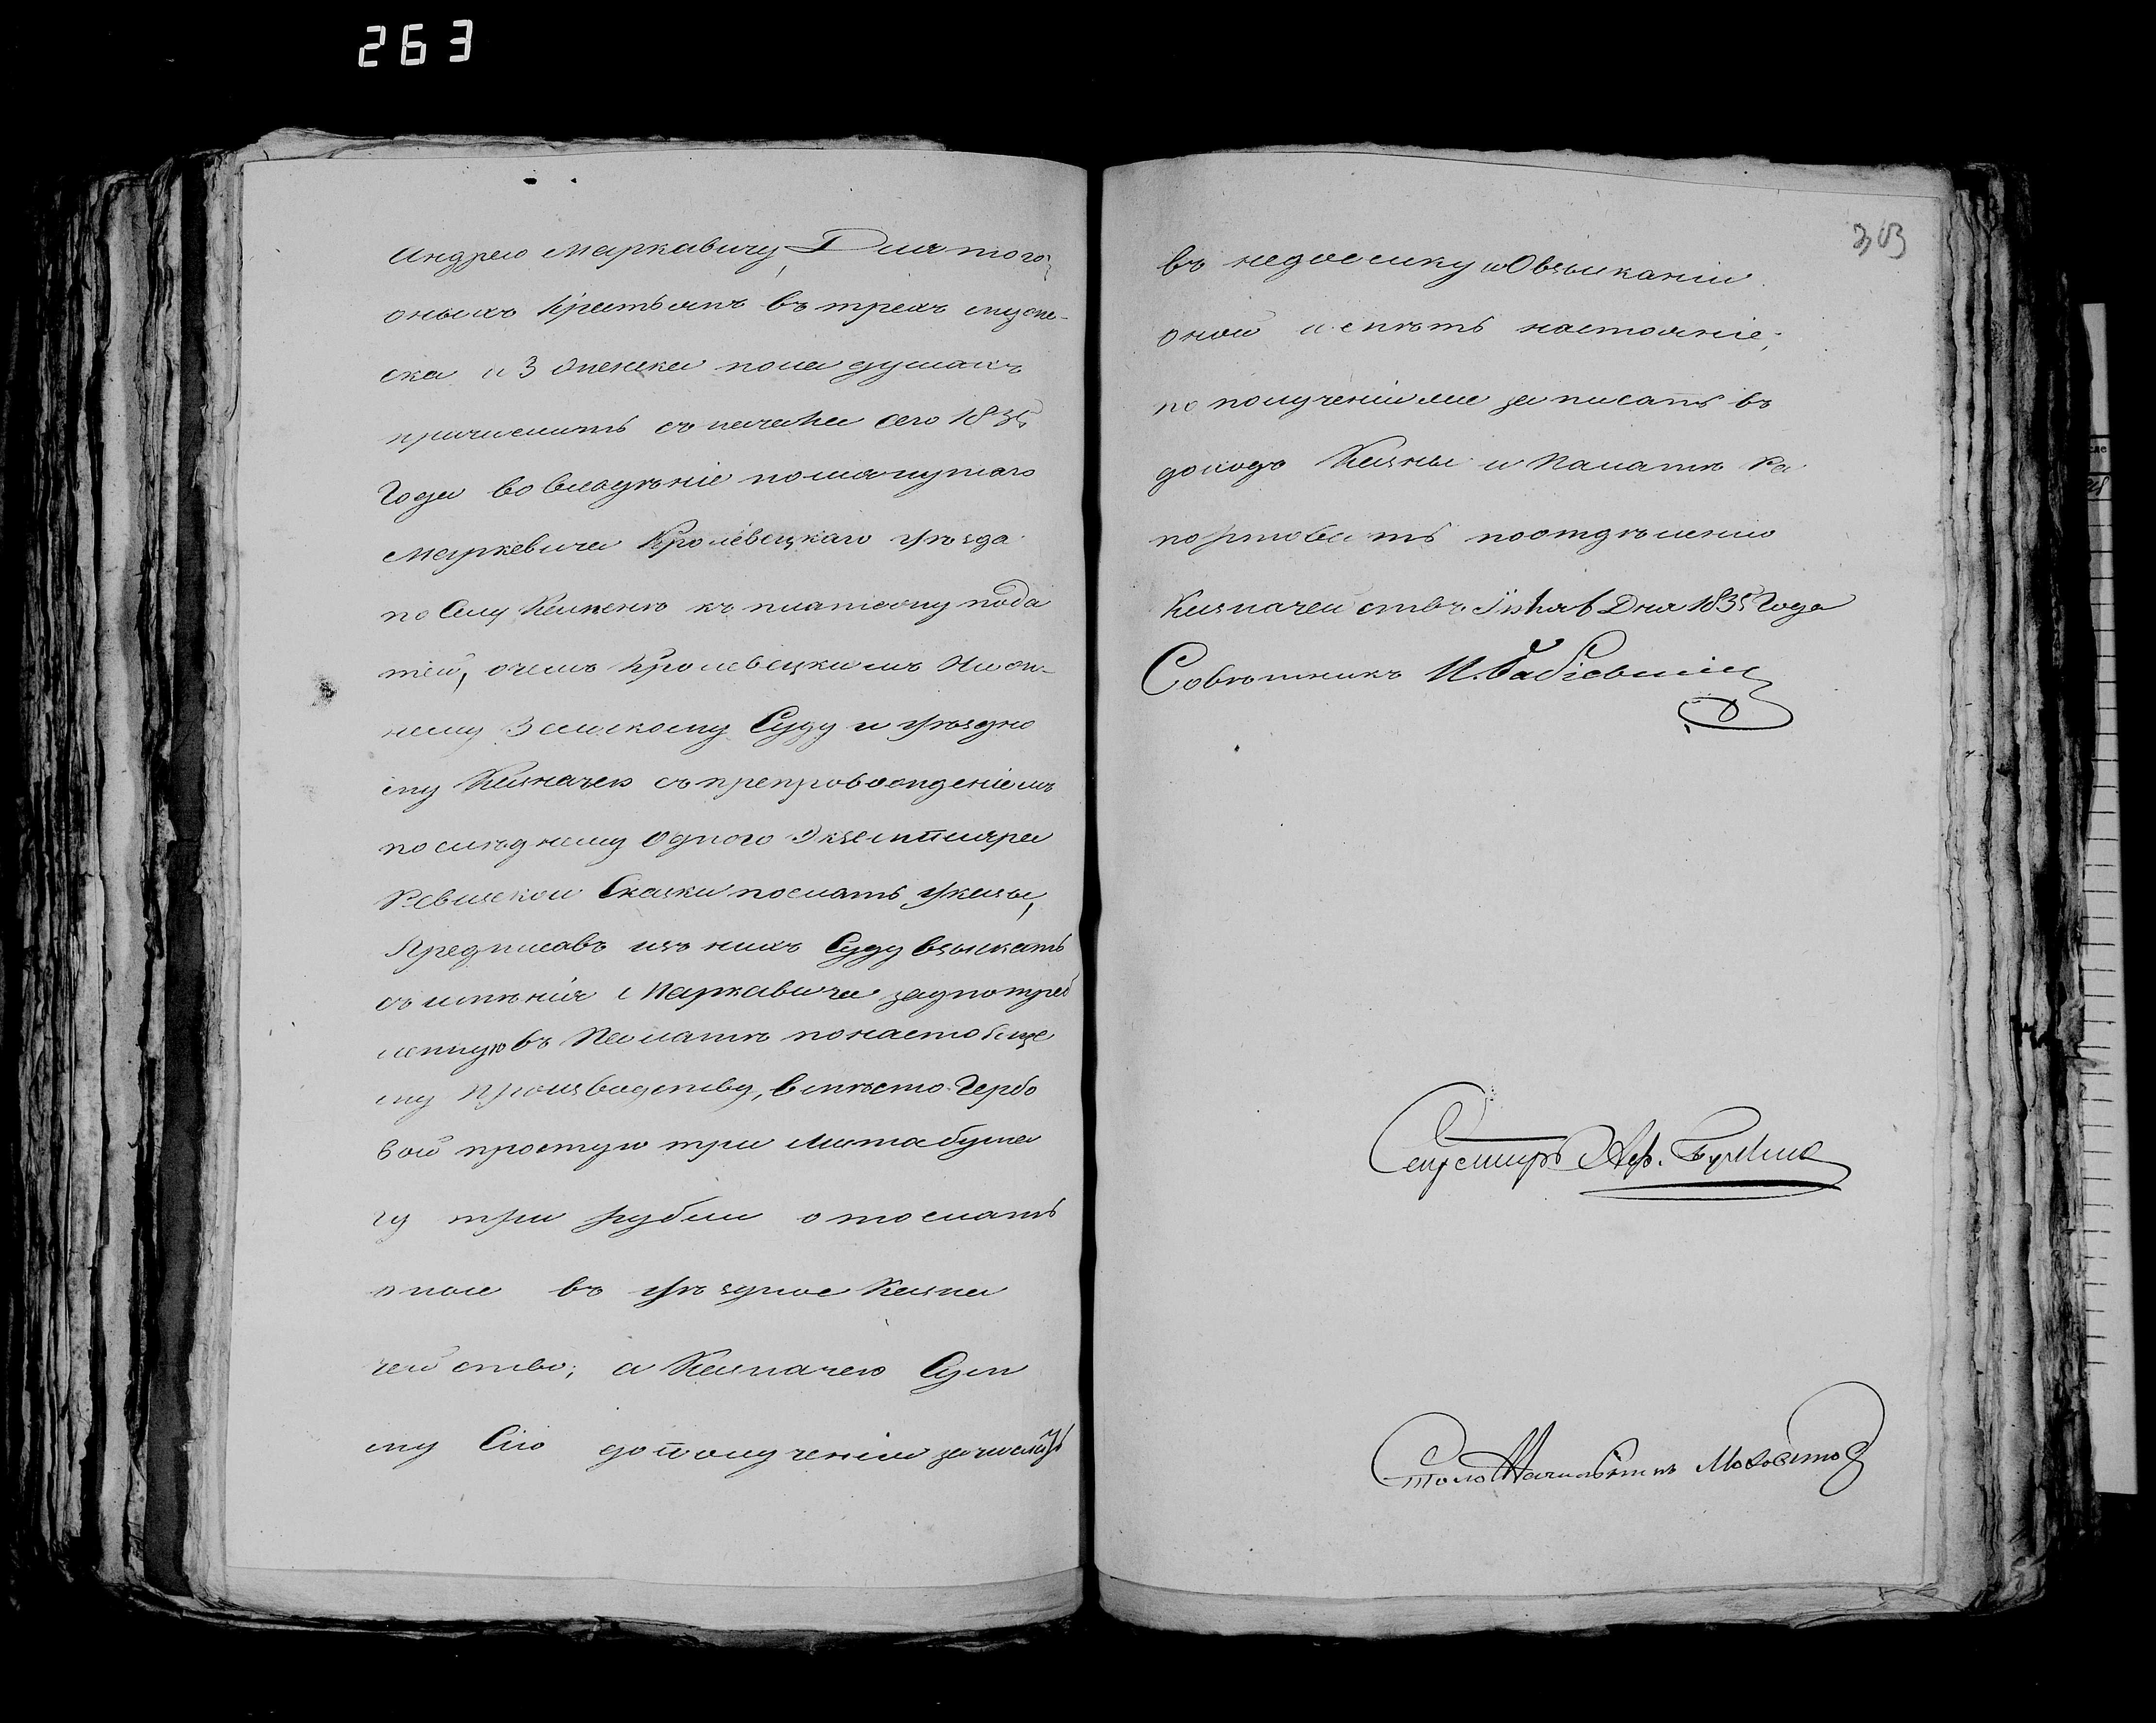 263
Андрею Маркавичу, Для того,
оныхъ Крестьянъ въ трехъ муже-
ска и 3 женска пола душахъ
причислить съ начала сего 1835
Года во владѣніе помянутаго
Маркевича Кролевецкаго уѣзда
по Селу къ платежу пода
тей, очемъ Кролевецкимъ Ниж-
нему Земскому Суду и уѣздно
му Казначею съ препровожденіемъ
послѣднему Одного Экземпляра
Ревизской Сказки послать указы,
Предписавъ изъ нихъ Суду взыскать
съ имѣнія Маркавича заупотреб
ленную въ Палатѣ понастояще
му производству, вмѣсто Гербо
вой простую три листа бума
гу три рубли отослать
оные въ уѣздное Казна
чейство; а Казначею Сум
му Сію дополученія зачислить
303
въ недоимку и Овзысканіи
оной имѣть настояніе;
по полученіи же записать въ
доходъ Казны и Палатѣ Ра
портовать поотдѣленію
Казначействъ. Дня 1835 Года
Совѣтникъ И.
Секретарь
Столоначальникъ